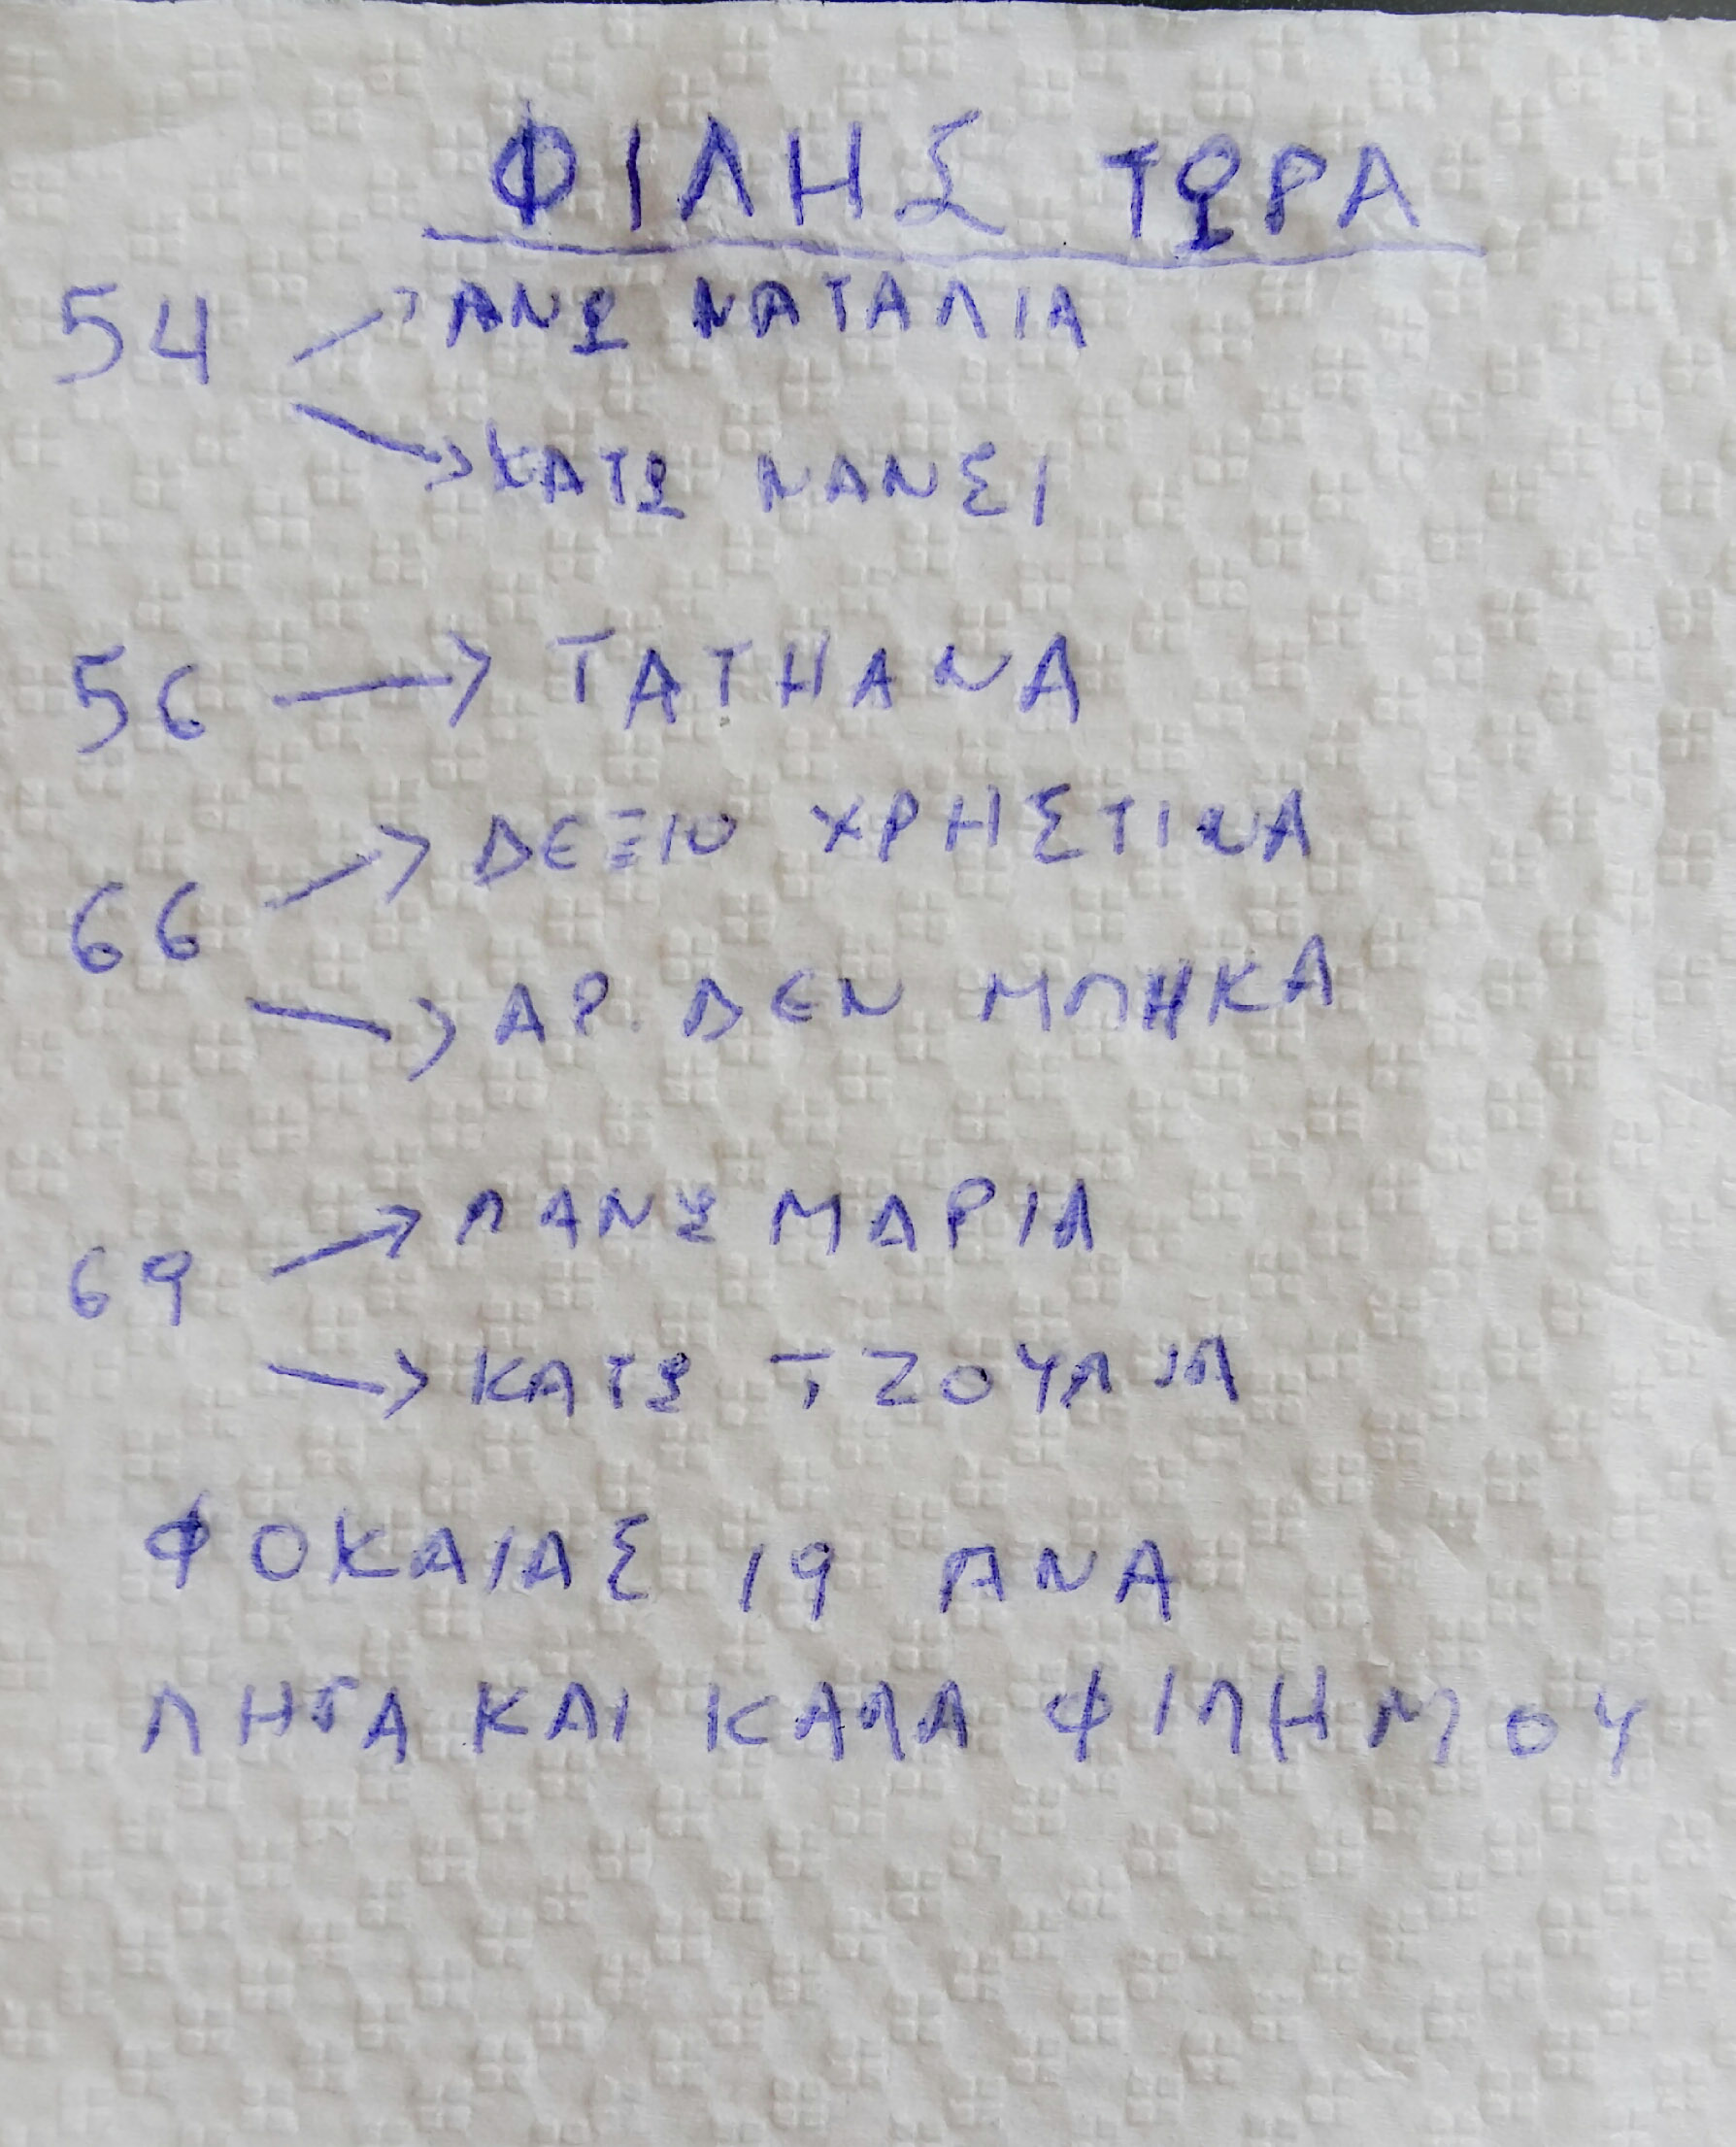 ΦΙΛΗΣ ΤΩΡΑ
54 → ΑΝΩ ΝΑΤΑΛΙΑ
→ ΚΑΤΩ ΝΑΝΣΙ
56 → ΤΑΤΗΑΝΑ
66 → ΔΕΞΙΟ ΧΡΗΣΤΙΝΑ
→ ΑΡ. ΔΕΝ ΜΠΗΚΑ
69 → ΠΑΝΩ ΜΑΡΙΑ
→ ΚΑΤΩ ΤΖΟΥΛΙΑ
ΦΟΚΑΙΑΣ 19 ΑΝΑ
ΛΗΓΑ ΚΑΙ ΚΑΛΑ ΦΙΛΗ ΜΟΥ